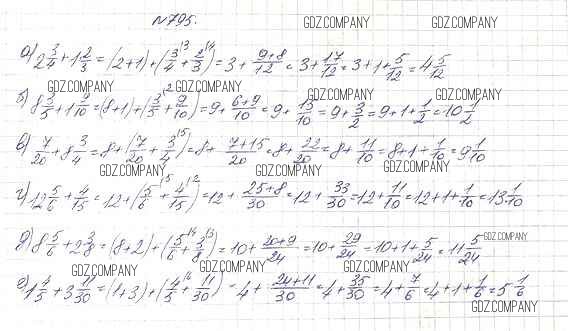 №795.
GDZ.COMPANY GDZ.COMPANY
а) 2 3/4 + 1 2/3 = (2+1) + (3/4 \3 + 2/3 \4) = 3 + (9+8)/12 = 3 + 17/12 = 3 + 1 + 5/12 = 4 5/12
GDZ.COMPANY GDZ.COMPANY GDZ.COMPANY
б) 8 3/5 + 1 9/10 = (8+1) + (3/5 \2 + 9/10) = 9 + (6+9)/10 = 9 + 15/10 = 9 + 3/2 = 9 + 1 + 1/2 = 10 1/2
в) 7/20 + 8 3/4 = 8 + (7/20 + 3/4 \5) = 8 + (7+15)/20 = 8 + 22/20 = 8 + 11/10 = 8 + 1 + 1/10 = 9 1/10
GDZ.COMPANY GDZ.COMPANY GDZ.COMPANY
г) 12 5/6 + 4/15 = 12 + (5/6 \5 + 4/15 \2) = 12 + (25+8)/30 = 12 + 33/30 = 12 + 11/10 = 12 + 1 + 1/10 = 13 1/10
д) 8 5/6 + 2 3/8 = (8+2) + (5/6 \4 + 3/8 \3) = 10 + (20+9)/24 = 10 + 29/24 = 10 + 1 + 5/24 = 11 5/24
GDZ.COMPANY
GDZ.COMPANY GDZ.COMPANY GDZ.COMPANY
е) 1 4/5 + 3 11/30 = (1+3) + (4/5 \6 + 11/30) = 4 + (24+11)/30 = 4 + 35/30 = 4 + 7/6 = 4 + 1 + 1/6 = 5 1/6
GDZ.COMPANY